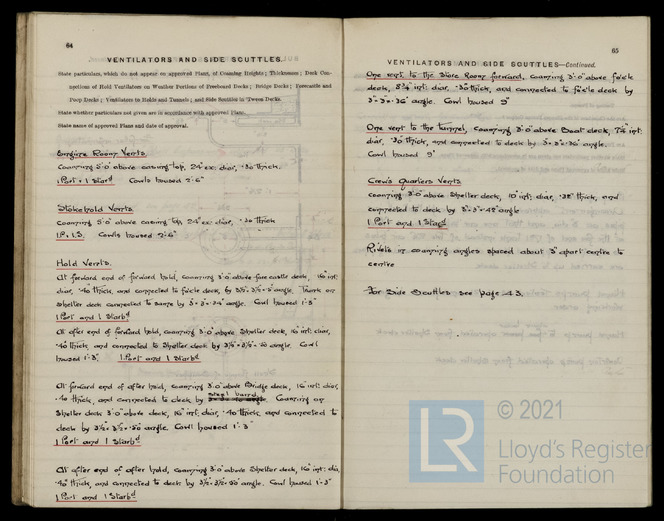 64
VENTILATORS AND SIDE SCUTTLES.
State particulars, which do not appear on approved Plans, of Coaming Heights; Thicknesses; Deck Con-
nections of Hold Ventilators on Weather Portions of Freeboard Decks; Bridge Decks; Forecastle and
Poop Decks; Ventilators to Holds and Tunnels; and Side Scuttles in 'Tween Decks.
State whether particulars not given are in accordance with approved Plans.
State name of approved Plans and date of approval.
Engine Room Vents.
Coaming 5'0" above casing top, 24" ex. diar, .30 thick.
1 Port & 1 Starbd Cowls housed 2'6"
Stokehold Vents.
Coaming 5'0" above casing top, 24" ex. diar, .30 thick
1.P. 1.S. Cowls housed 2'6"
Hold Vents.
At forward end of forward hold, coaming 3'0" above fore castle deck, 16" int:
diar, .40 thick, and connected to fo'cle deck by 3½ × 3½ ×
Shelter deck connected to same by 3" × 3" × .34" angle. Cowl housed 1'3"
1 Port and 1 Starbd
At after end of forward hold, coaming 3'0" above Shelter deck, 16" int: diar,
.40 thick, and connected to Shelter deck by 3½" × 3½" × .50 angle. Cowl
housed 1'3". 1 Port and 1 Starbd
At forward end of after hold, coaming 3'0" above Bridge deck, 16" int: diar,
.40 thick, and connected to deck by steel band Coaming on
Shelter deck 3'0" above deck, 16" int. diar, .40 thick, and connected to
deck by 3½" × 3½" × .50" angle. Cowl housed 1'3"
1 Port and 1 Starbd
At after end of after hold, coaming 3'0" above Shelter deck, 16" int: dia,
.40" thick, and connected to deck by 3½" × 3½" × .50" angle. Cowl housed 1'3"
1 Port and 1 Starbd
65
VENTILATORS AND SIDE SCUTTLES—Continued.
One vent to the Store Room forward, coaming 3'0" above fo'cle
deck, 8¾" int: diar, .30 thick, and connected to fo'cle deck by
3" × 3" × .36" angle. Cowl housed 9"
One vent to the tunnel, coaming 3'0" above Boat deck, int:
diar, .30 thick, and connected to deck by 3" × 3" × .36" angle.
Cowl housed 9"
Crew's Quarters Vents.
Coaming 3'0" above Shelter deck, 10" int: diar, .38" thick, and
connected to deck by 3" × 3" × .42" angle
1 Port and 1 Starbd
Rivets in coaming angles spaced about 3" apart centre to
centre
For Side Scuttles see page 43.
LR
© 2021
Lloyd's Register
Foundation